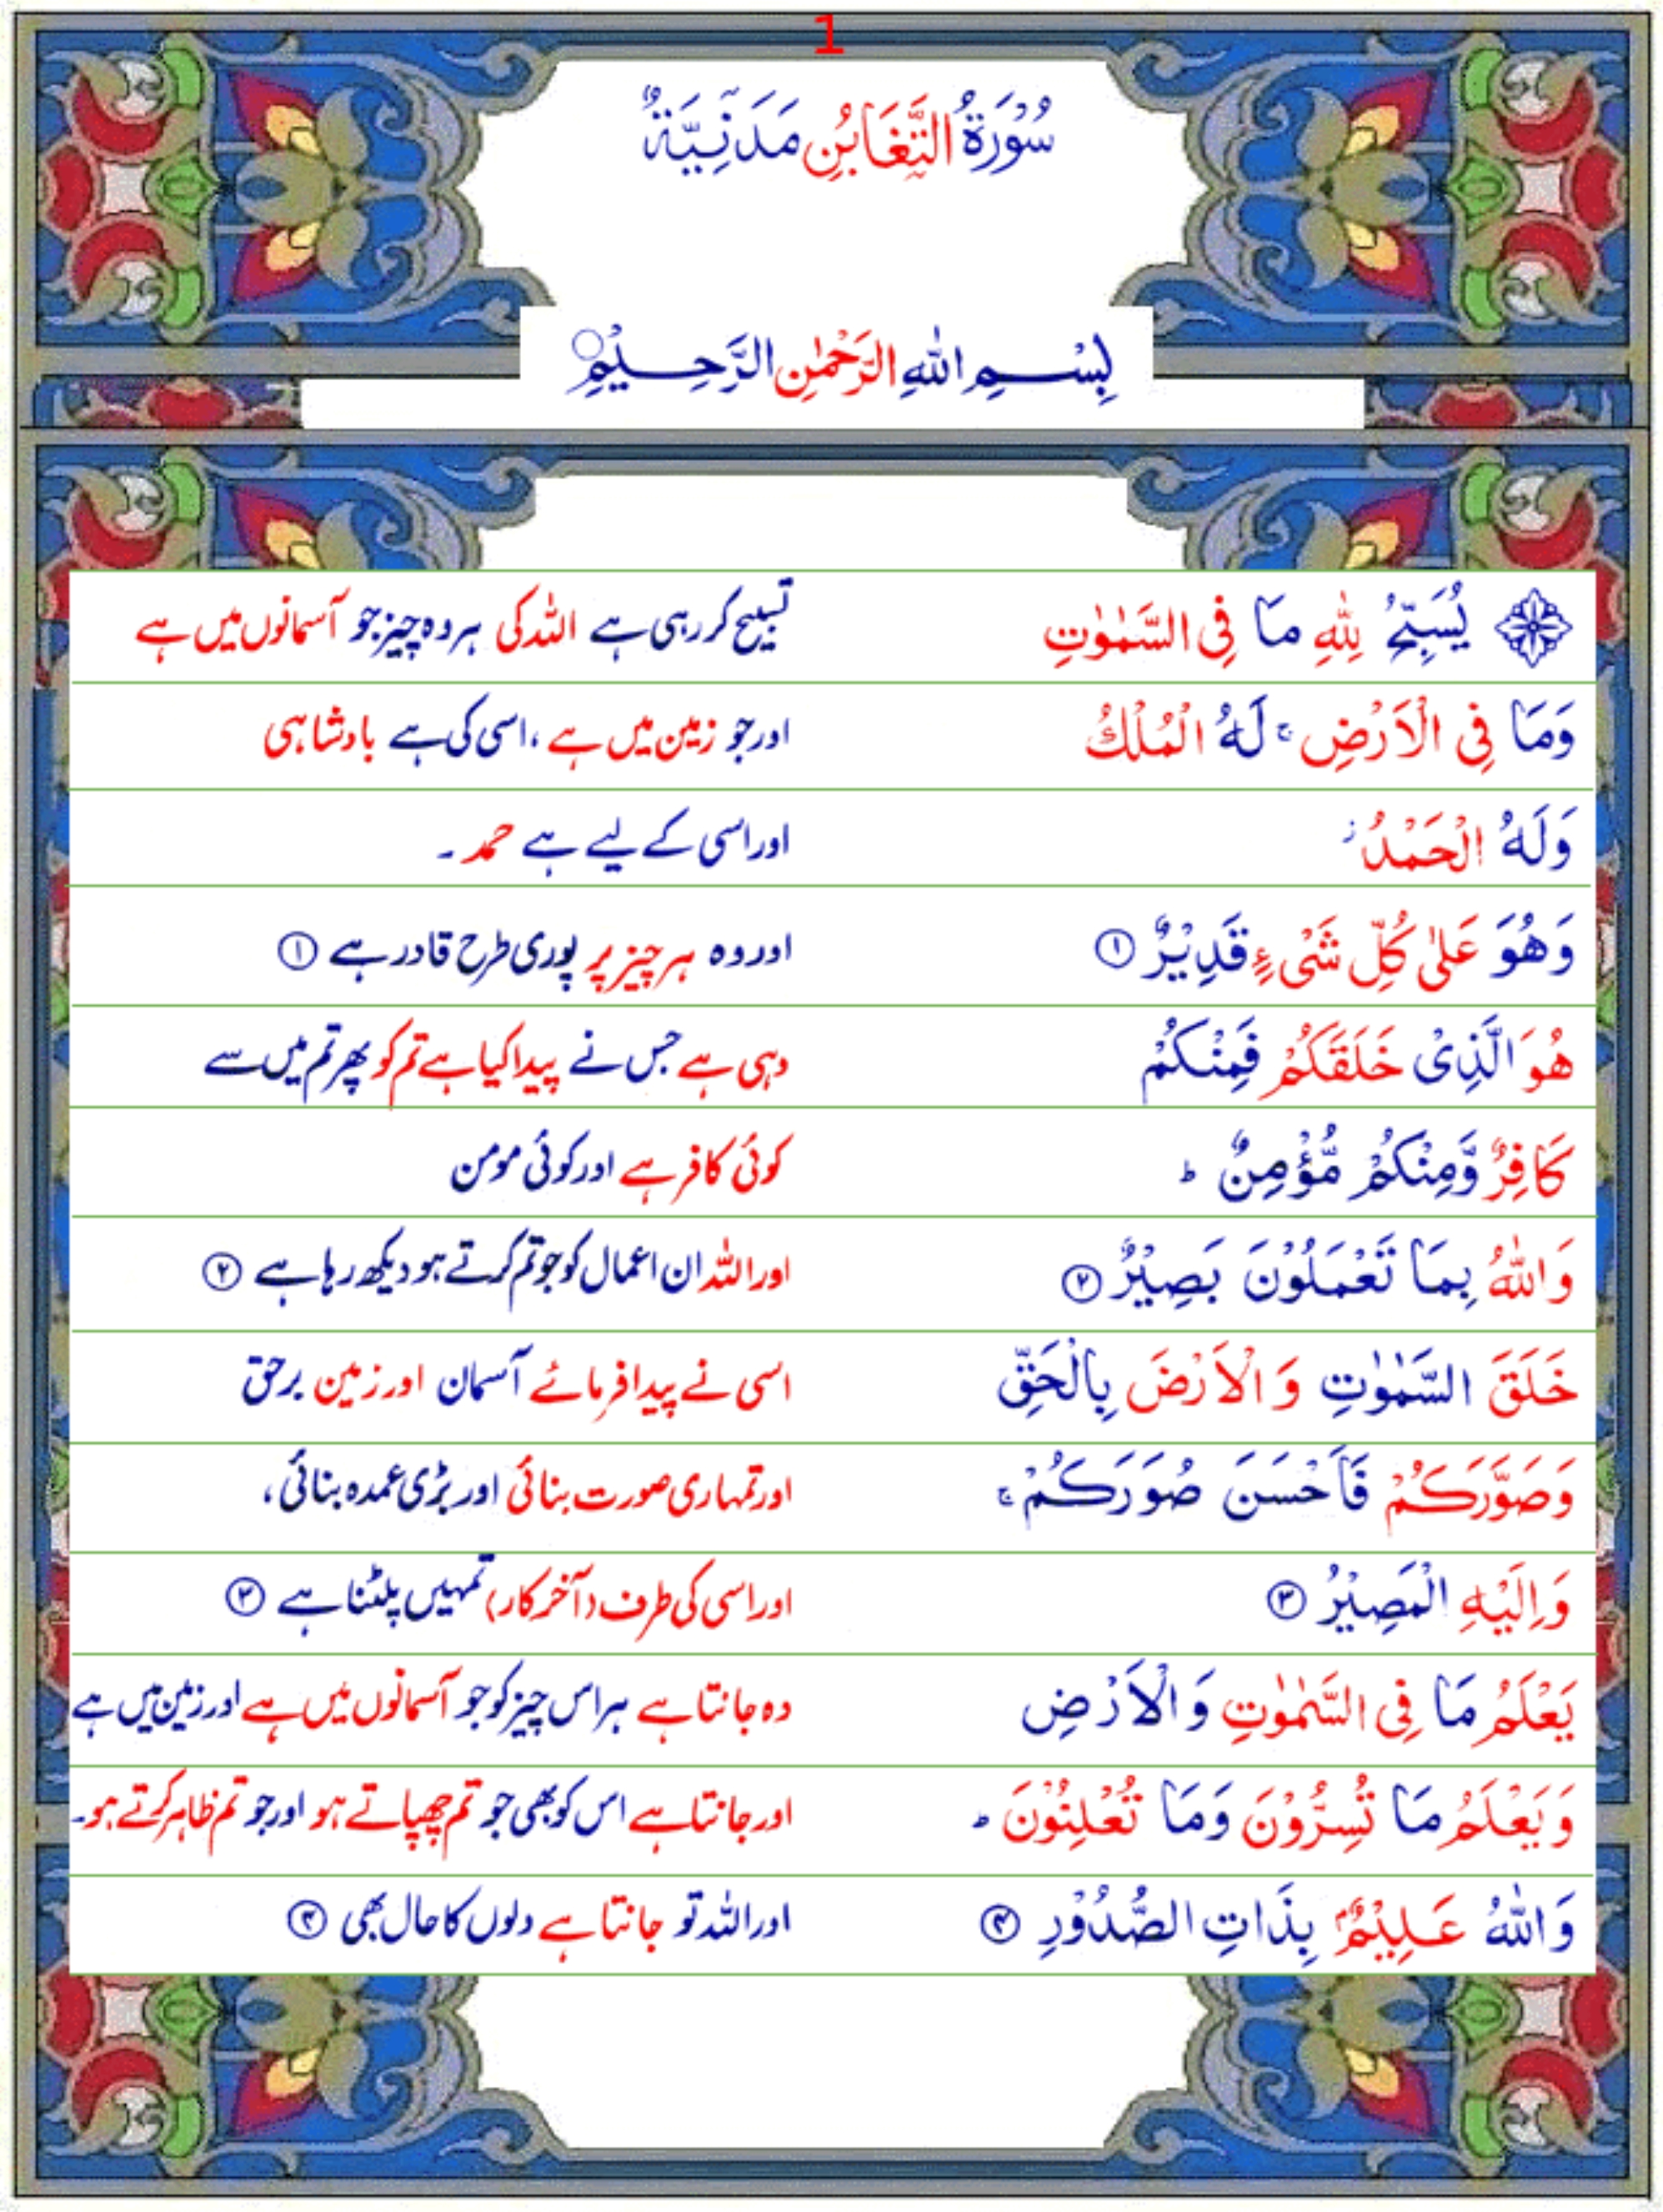 1
سُوْرَةُ التَّغَابُنِ مَدَنِيَّةٌ
بِسْمِ اللّٰهِ الرَّحْمٰنِ الرَّحِيْمِ
يُسَبِّحُ لِلّٰهِ مَا فِى السَّمٰوٰتِ تسبیح کر رہی ہے اللہ کی ہر وہ چیز جو آسمانوں میں ہے
وَمَا فِى الْاَرْضِ ۚ لَهُ الْمُلْكُ اور جو زمین میں ہے ، اسی کی ہے بادشاہی
وَلَهُ الْحَمْدُ ز اور اسی کے لیے ہے حمد ۔
وَهُوَ عَلٰى كُلِّ شَىْءٍ قَدِيْرٌ ① اور وہ ہر چیز پر پوری طرح قادر ہے ①
هُوَ الَّذِىْ خَلَقَكُمْ فَمِنْكُمْ وہی ہے جس نے پیدا کیا ہے تم کو پھر تم میں سے
كَافِرٌ وَّمِنْكُمْ مُّؤْمِنٌ ؕ کوئی کافر ہے اور کوئی مومن
وَاللّٰهُ بِمَا تَعْمَلُوْنَ بَصِيْرٌ ② اور اللہ ان اعمال کو جو تم کرتے ہو دیکھ رہا ہے ②
خَلَقَ السَّمٰوٰتِ وَالْاَرْضَ بِالْحَقِّ اسی نے پیدا فرمائے آسمان اور زمین برحق
وَصَوَّرَكُمْ فَاَحْسَنَ صُوَرَكُمْ ۚ اور تمہاری صورت بنائی اور بڑی عمدہ بنائی ،
وَاِلَيْهِ الْمَصِيْرُ ③ اور اسی کی طرف (آخر کار) تمہیں پلٹنا ہے ③
يَعْلَمُ مَا فِى السَّمٰوٰتِ وَالْاَرْضِ وہ جانتا ہے ہر اس چیز کو جو آسمانوں میں ہے اور زمین میں ہے
وَيَعْلَمُ مَا تُسِرُّوْنَ وَمَا تُعْلِنُوْنَ ؕ اور جانتا ہے اس کو بھی جو تم چھپاتے ہو اور جو تم ظاہر کرتے ہو۔
وَاللّٰهُ عَلِيْمٌۢ بِذَاتِ الصُّدُوْرِ ④ اور اللہ تو جانتا ہے دلوں کا حال بھی ④